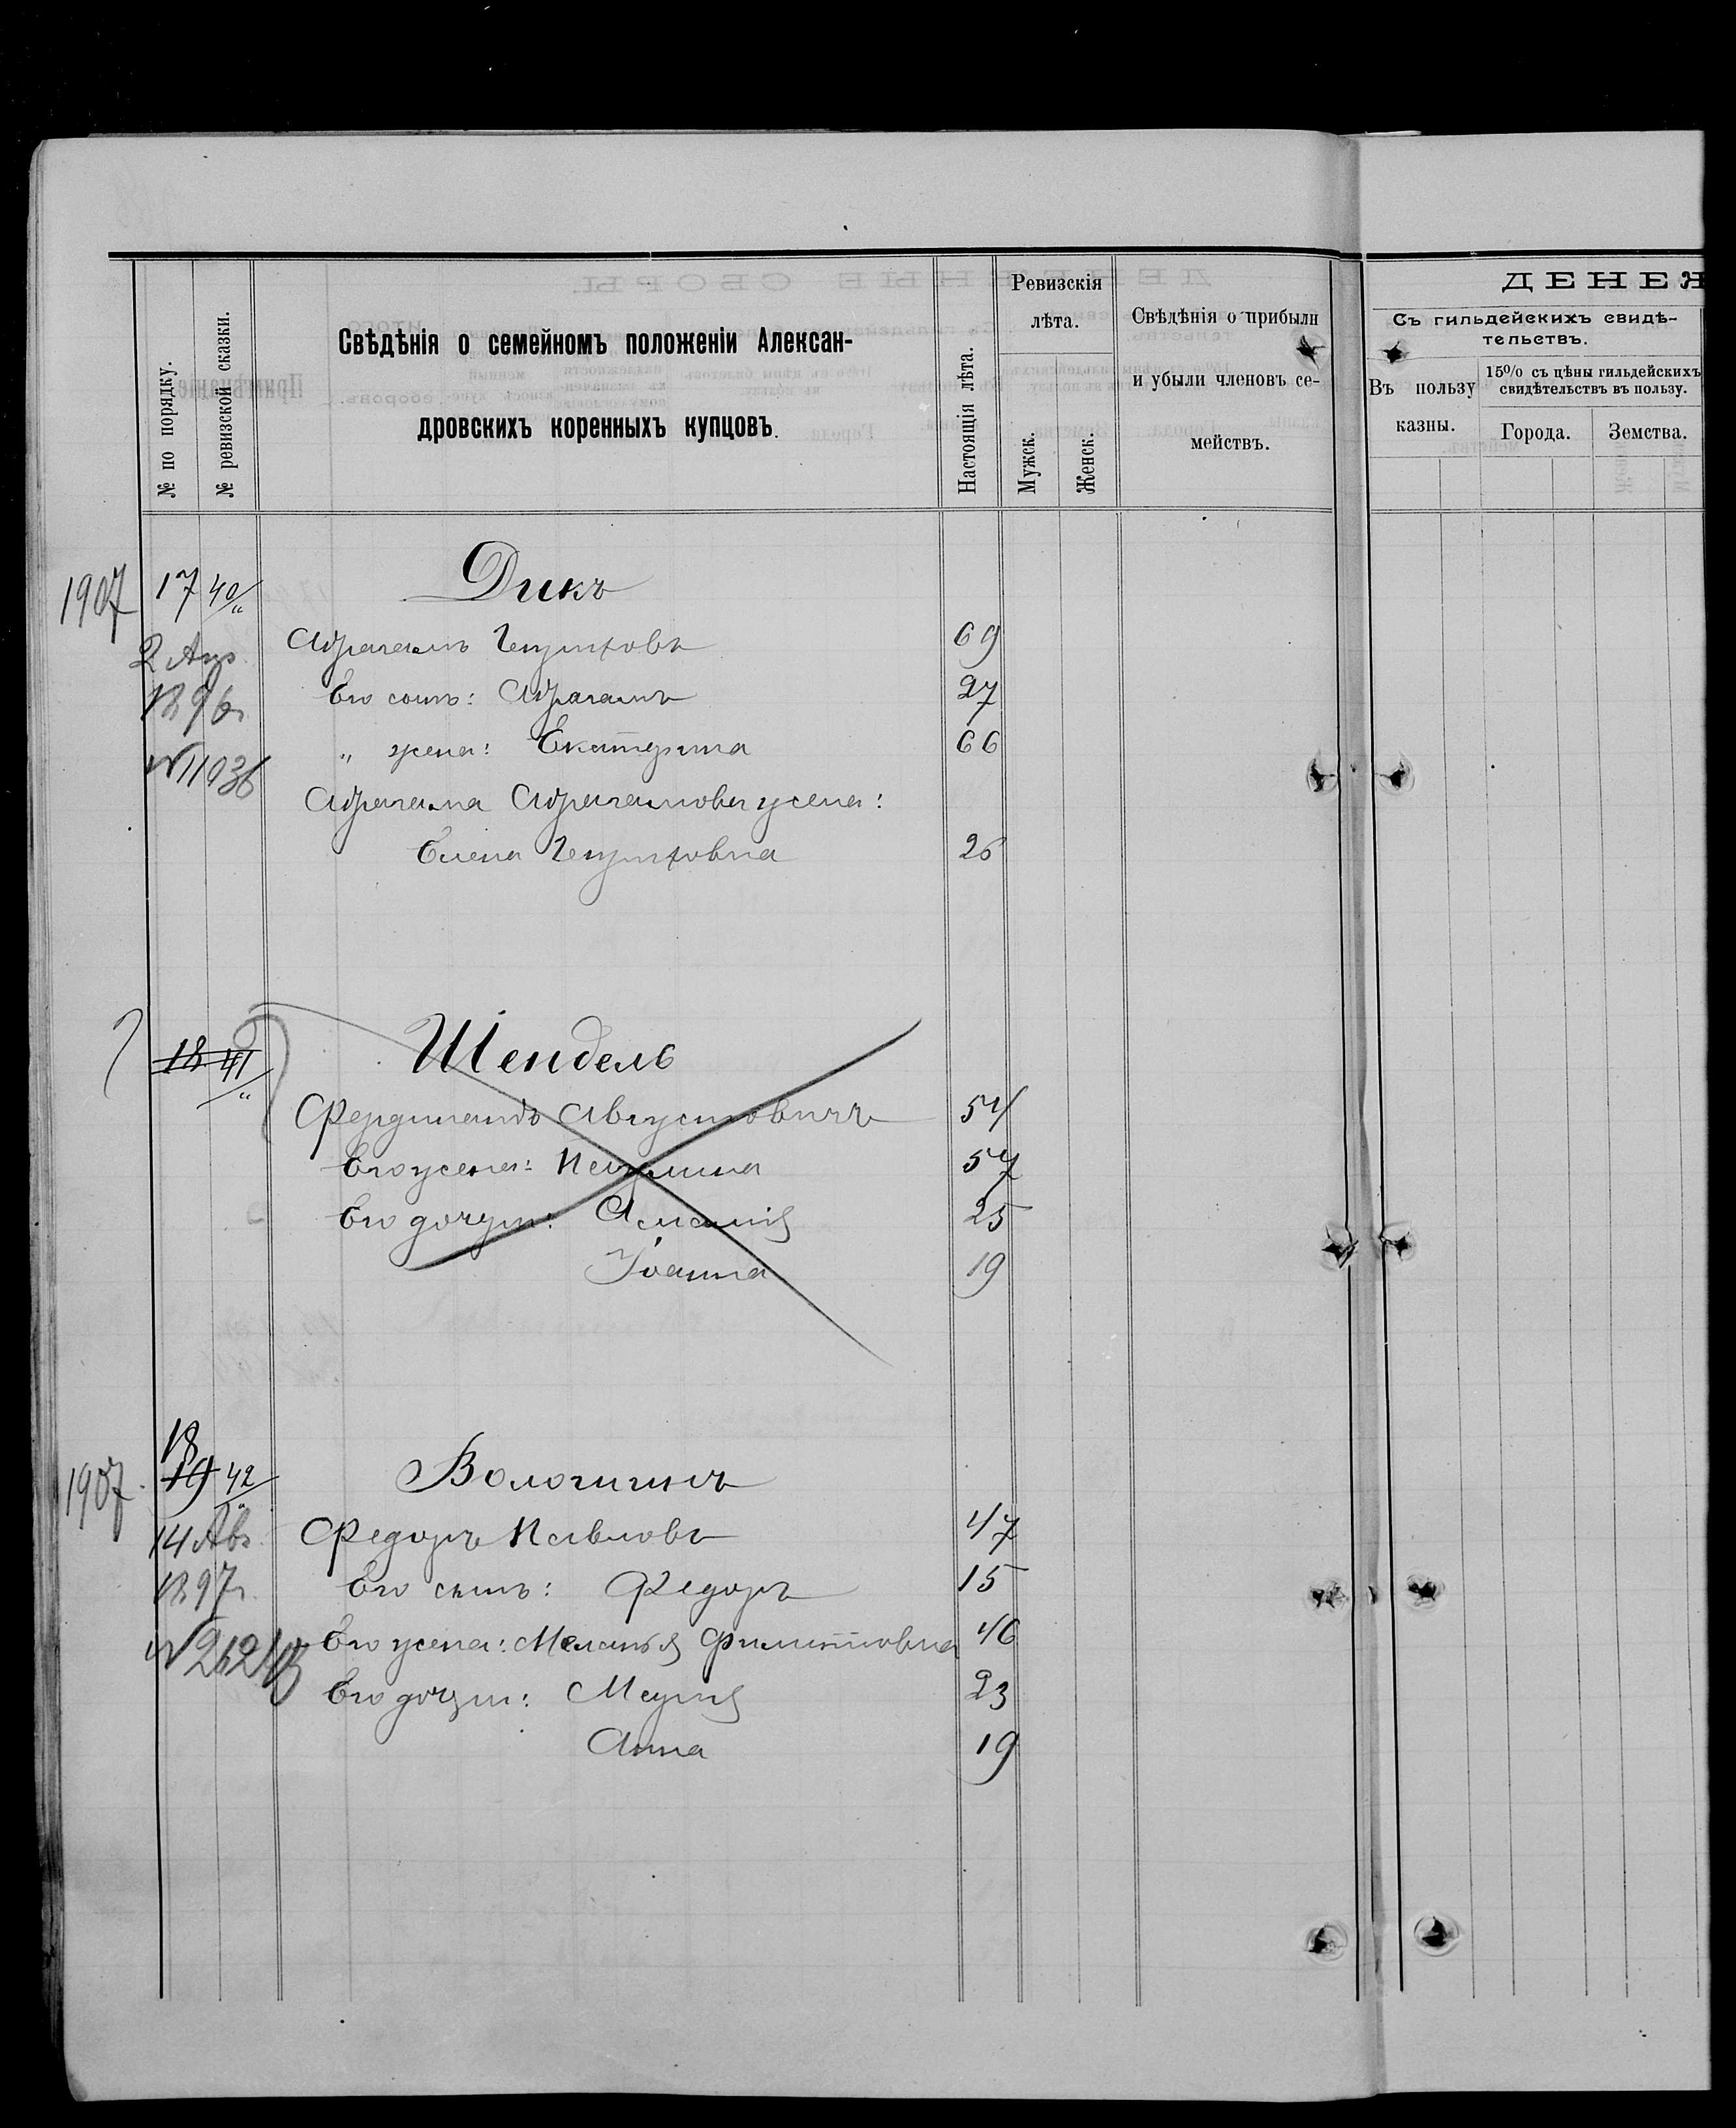 № по порядку.
№ ревизской сказки.
Свѣдѣнія о семейномъ положеніи Алексан-
дровскихъ коренныхъ купцовъ.
Настоящія лѣта.
Ревизскія
лѣта.
Мужск.
Женск.
Свѣдѣнія о прибыли
и убыли членовъ се-
мействъ.
ДЕНЕЖ
Съ гильдейскихъ свидѣ-
тельствъ.
Въ пользу
казны.
15% съ цѣны гильдейскихъ
свидѣтельствъ въ пользу.
Города.
Земства.
1907 17 40/" Дикъ
2 Апр. Абрагамъ Генриховъ 69
1896г Его сынъ: Абрагамъ 27
№ 11936 " жена: Екатерина 66
Абрагама Абрагамова жена:
Елена Генриховна 26
18 41/" Шендель
Фердинандъ Августовичъ 54
Его жена: Паулина 57
Его дочери: Амалія 25
Іоанна 19
18
1907. 19 42/" Вологинъ
14 Авг. Федоръ Павловъ 47
1897г. Его сынъ: Федоръ 15
Его жена: Меланья Филипповна 46
Его дочери: Марія 23
Анна 19